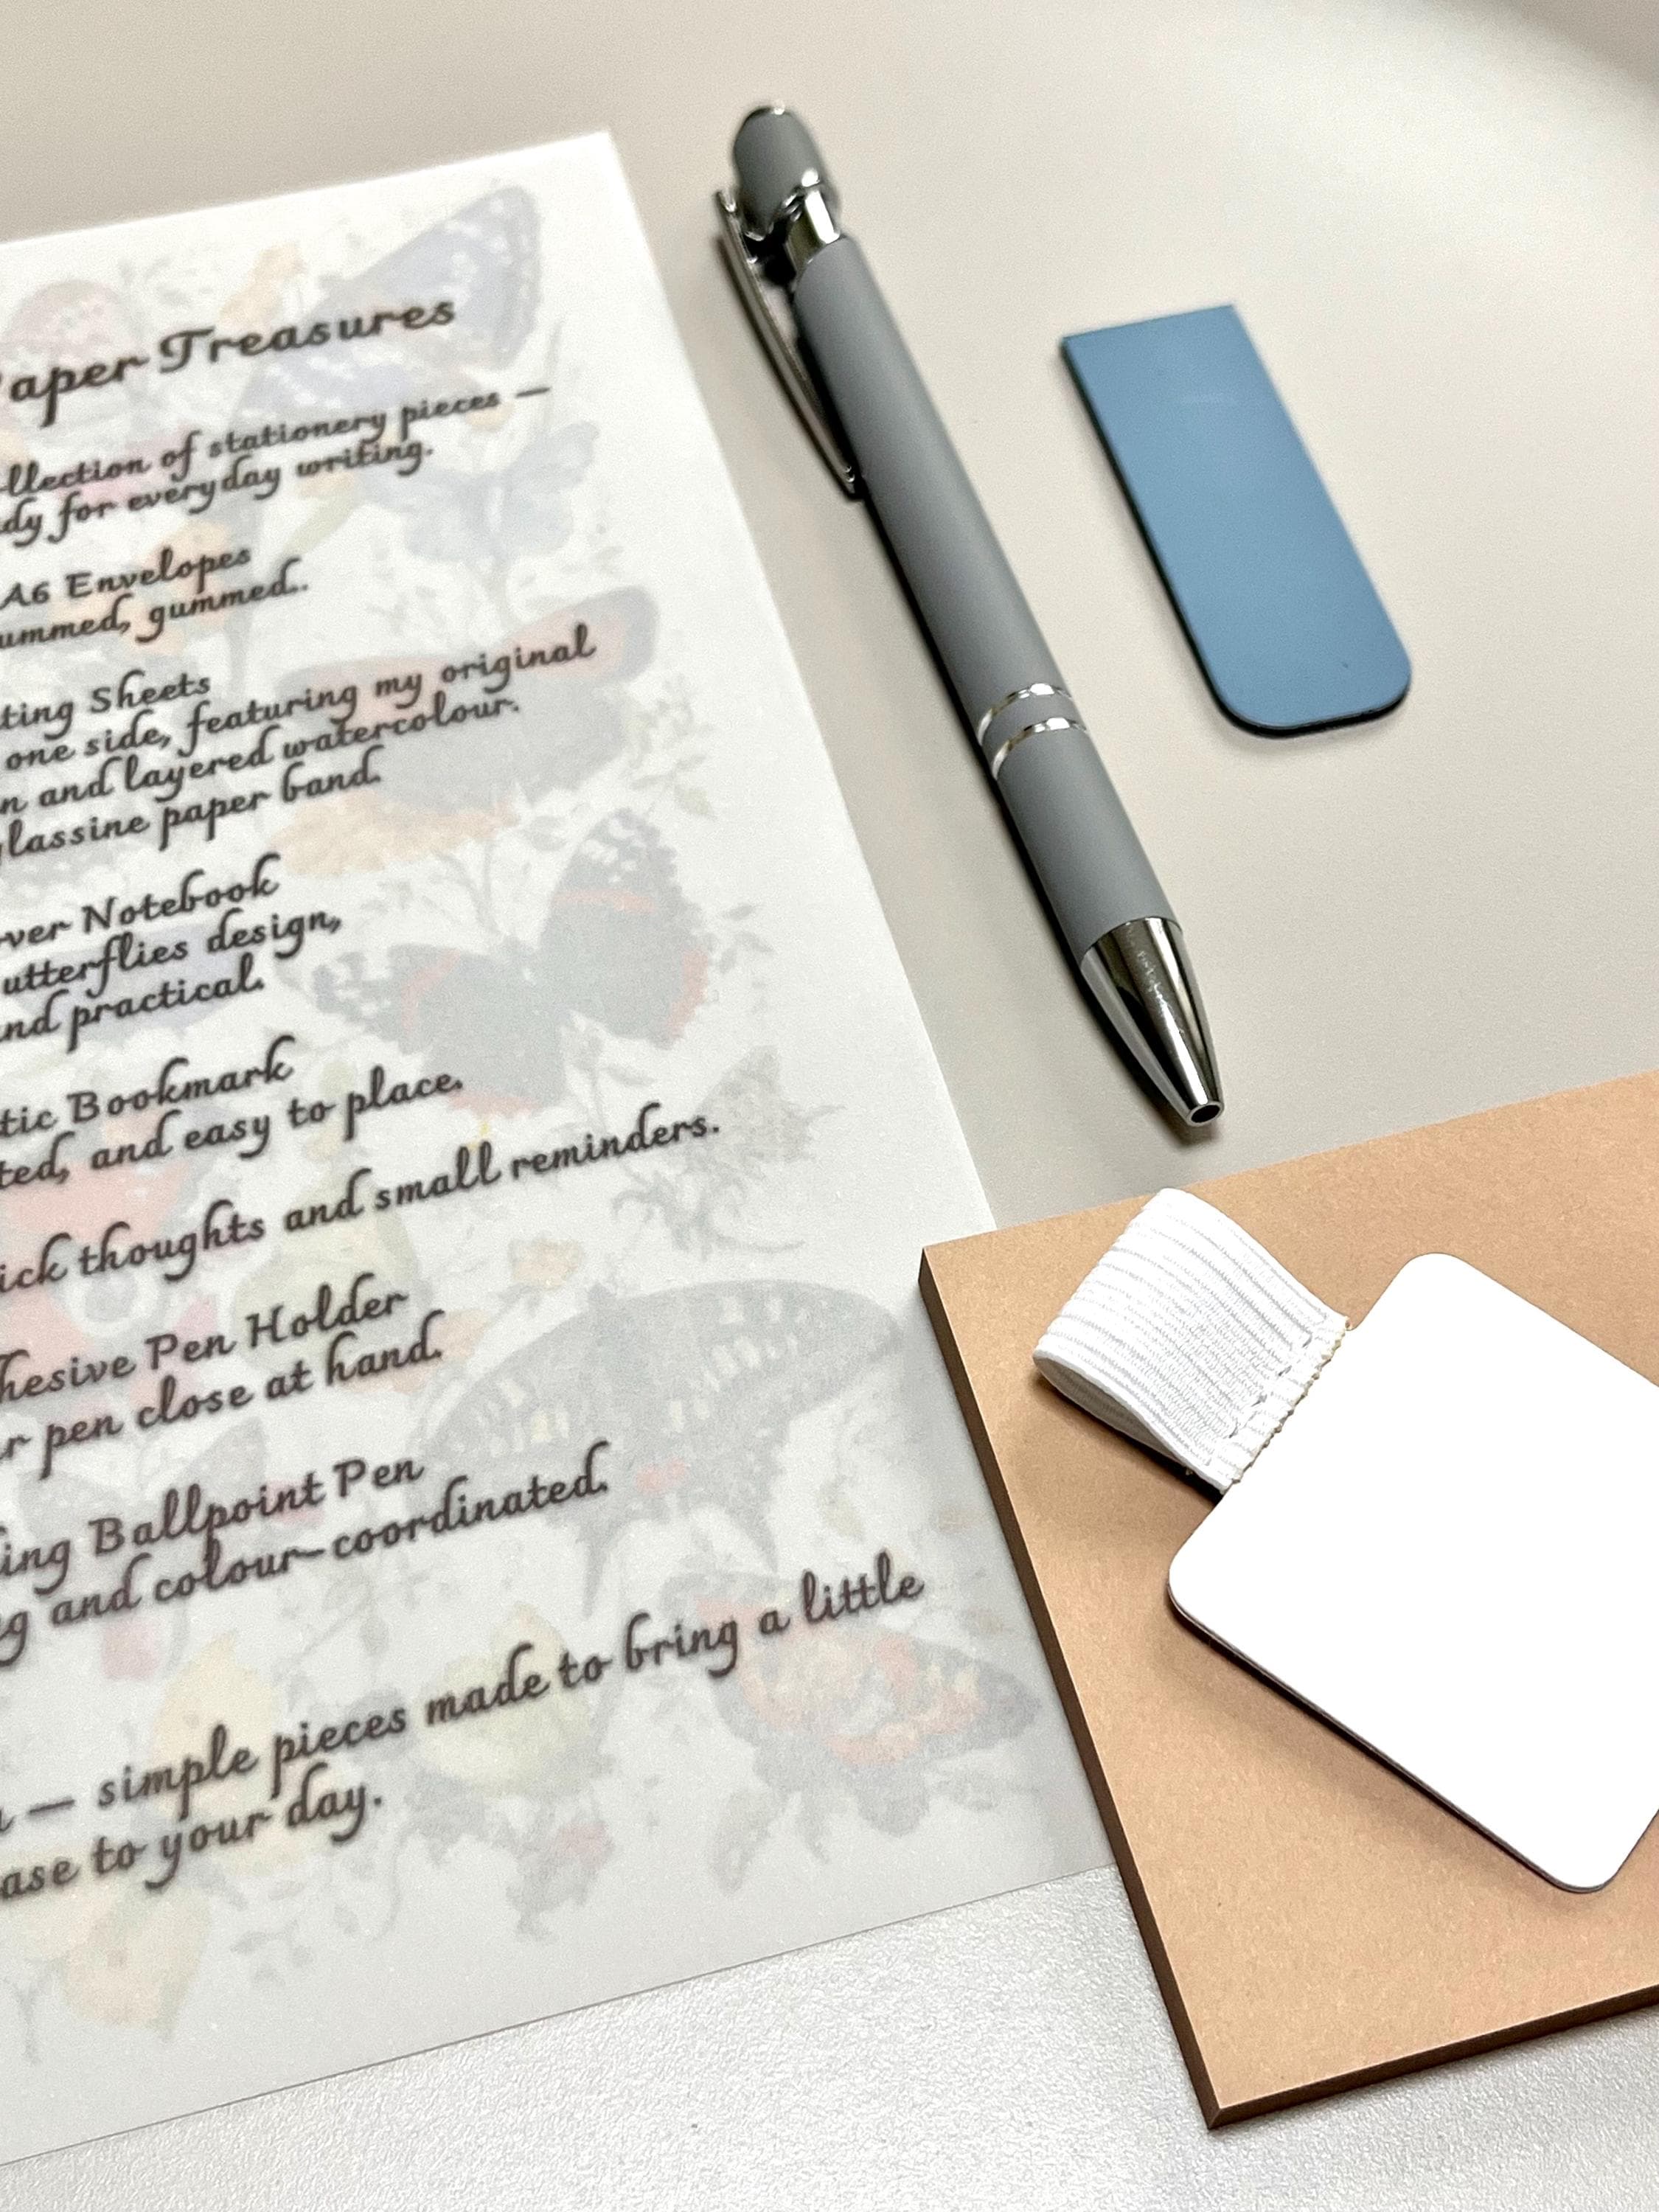 aper Treasures
llection of stationery pieces —
dy for everyday writing.
A6 Envelopes
ummed, gummed..
ting Sheets
one side, featuring my original
n and layered watercolour.
lassine paper band.
ver Notebook
utterflies design,
nd practical.
tic Bookmark
ted, and easy to place.
ick thoughts and small reminders.
hesive Pen Holder
r pen close at hand.
ing Ballpoint Pen
g and colour-coordinated.
— simple pieces made to bring a little
ase to your day.